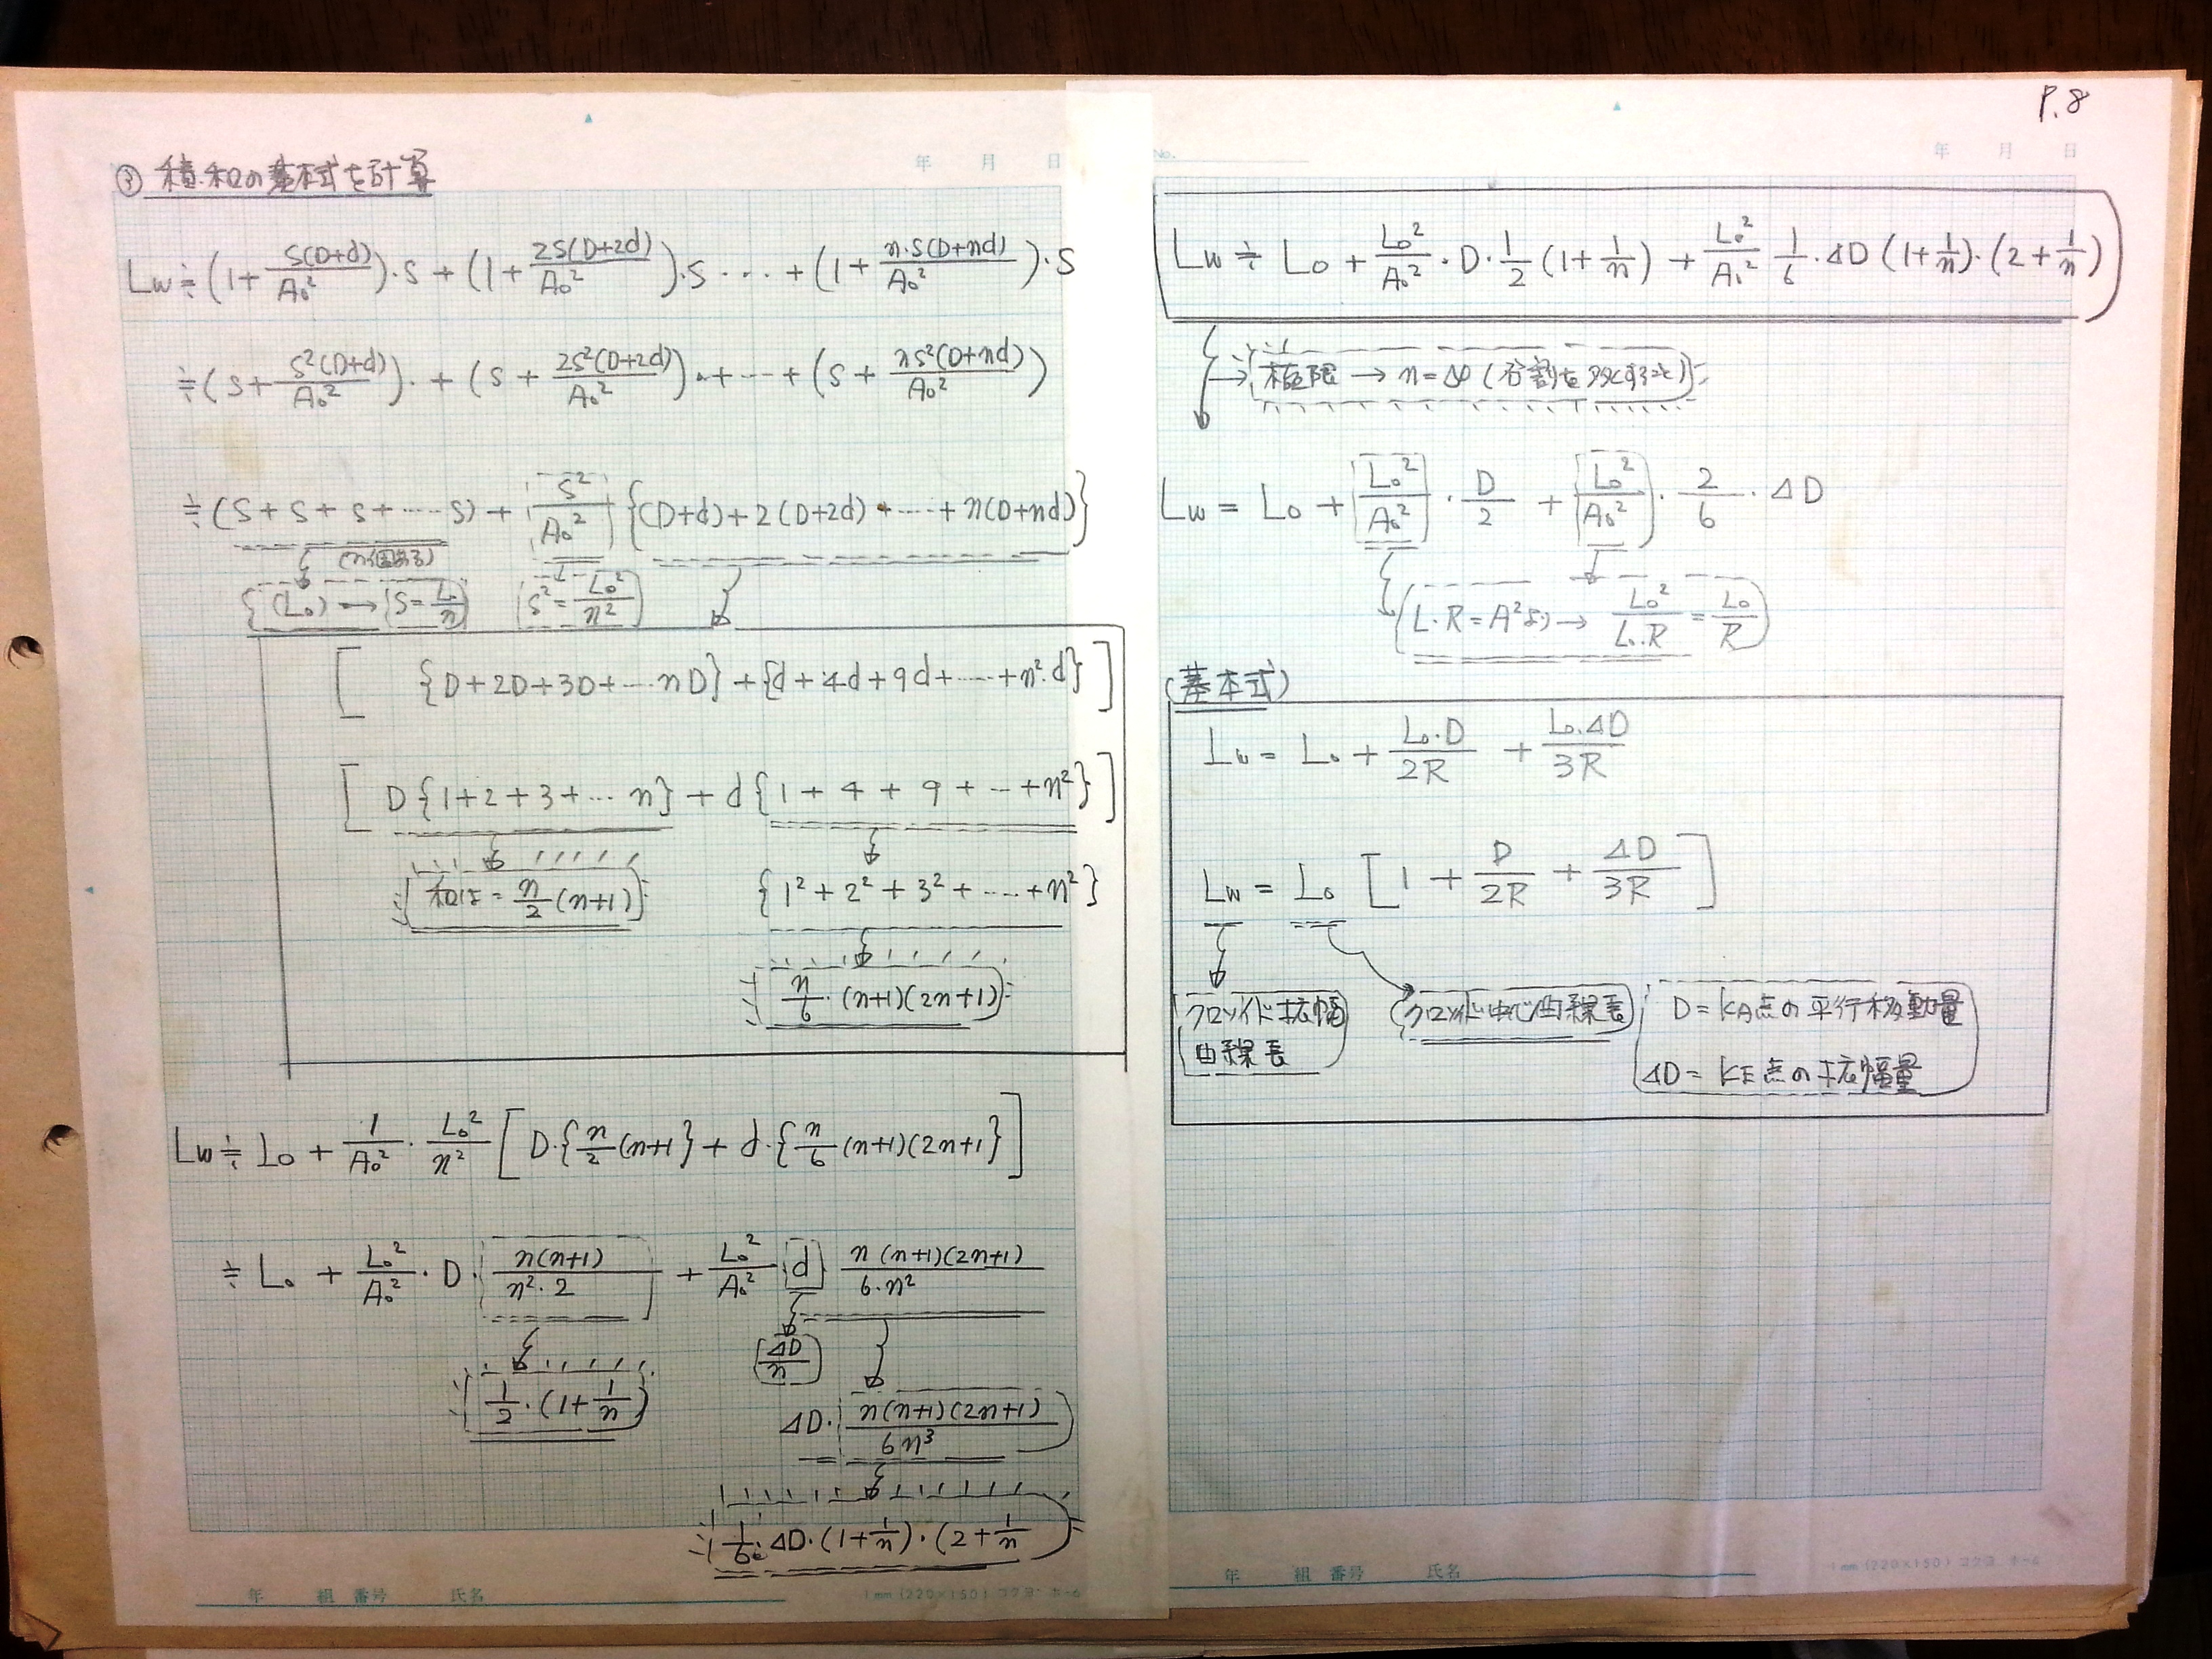 P.8
年 月 日
③ 積和の基本式を計算
Lw≒(1+S(D+d)/A₀²)・S+(1+2S(D+2d)/A₀²)・S・・・+(1+n・S(D+nd)/A₀²)・S
≒(S+S²(D+d)/A₀²)・+(S+2S²(D+2d)/A₀²)・+…+(S+nS²(D+nd)/A₀²)
≒(S+S+S+……S)+S²/A₀²{(D+d)+2(D+2d)+……+n(D+nd)}
(n個ある)
{(L₀)→(S=L₀/n) (S²=L₀²/n²)
[{D+2D+3D+…nD}+{d+4d+9d+……+n²・d}]
[D{1+2+3+…n}+d{1+4+9+…+n²}]
和は=n/2(n+1) {1²+2²+3²+……+n²}
n/6・(n+1)(2n+1)
Lw≒L₀+1/A₀²・L₀²/n²[D・{n/2(n+1}+d・{n/6(n+1)(2n+1}]
≒L₀+L₀²/A₀²・D・n(n+1)/n²・2+L₀²/A₀²(d)n(n+1)(2n+1)/6・n²
(ΔD/n)
1/2・(1+1/n) ΔD・n(n+1)(2n+1)/6n³
1/6・ΔD・(1+1/n)・(2+1/n
年 組 番号 氏名
1mm(220×150)コクヨ ホ-6
No. 年 月 日
Lw≒L₀+L₀²/A₀²・D・1/2(1+1/n)+L₀²/A₀² 1/6・ΔD(1+1/n)・(2+1/n)
極限→n=∞(分割を多くすると)
Lw=L₀+L₀²/A₀²・D/2+L₀²/A₀²・2/6・ΔD
(L・R=A²より→L₀²/L₀・R=L₀/R)
(基本式)
Lw=L₀+L₀・D/2R+L₀・ΔD/3R
Lw=L₀[1+D/2R+ΔD/3R]
クロソイド拡幅
曲線長
クロソイド中心曲線長
D=KA点の平行移動量
ΔD=KE点の拡幅量
年 組 番号 氏名
1mm(220×150)コクヨ ホ-6